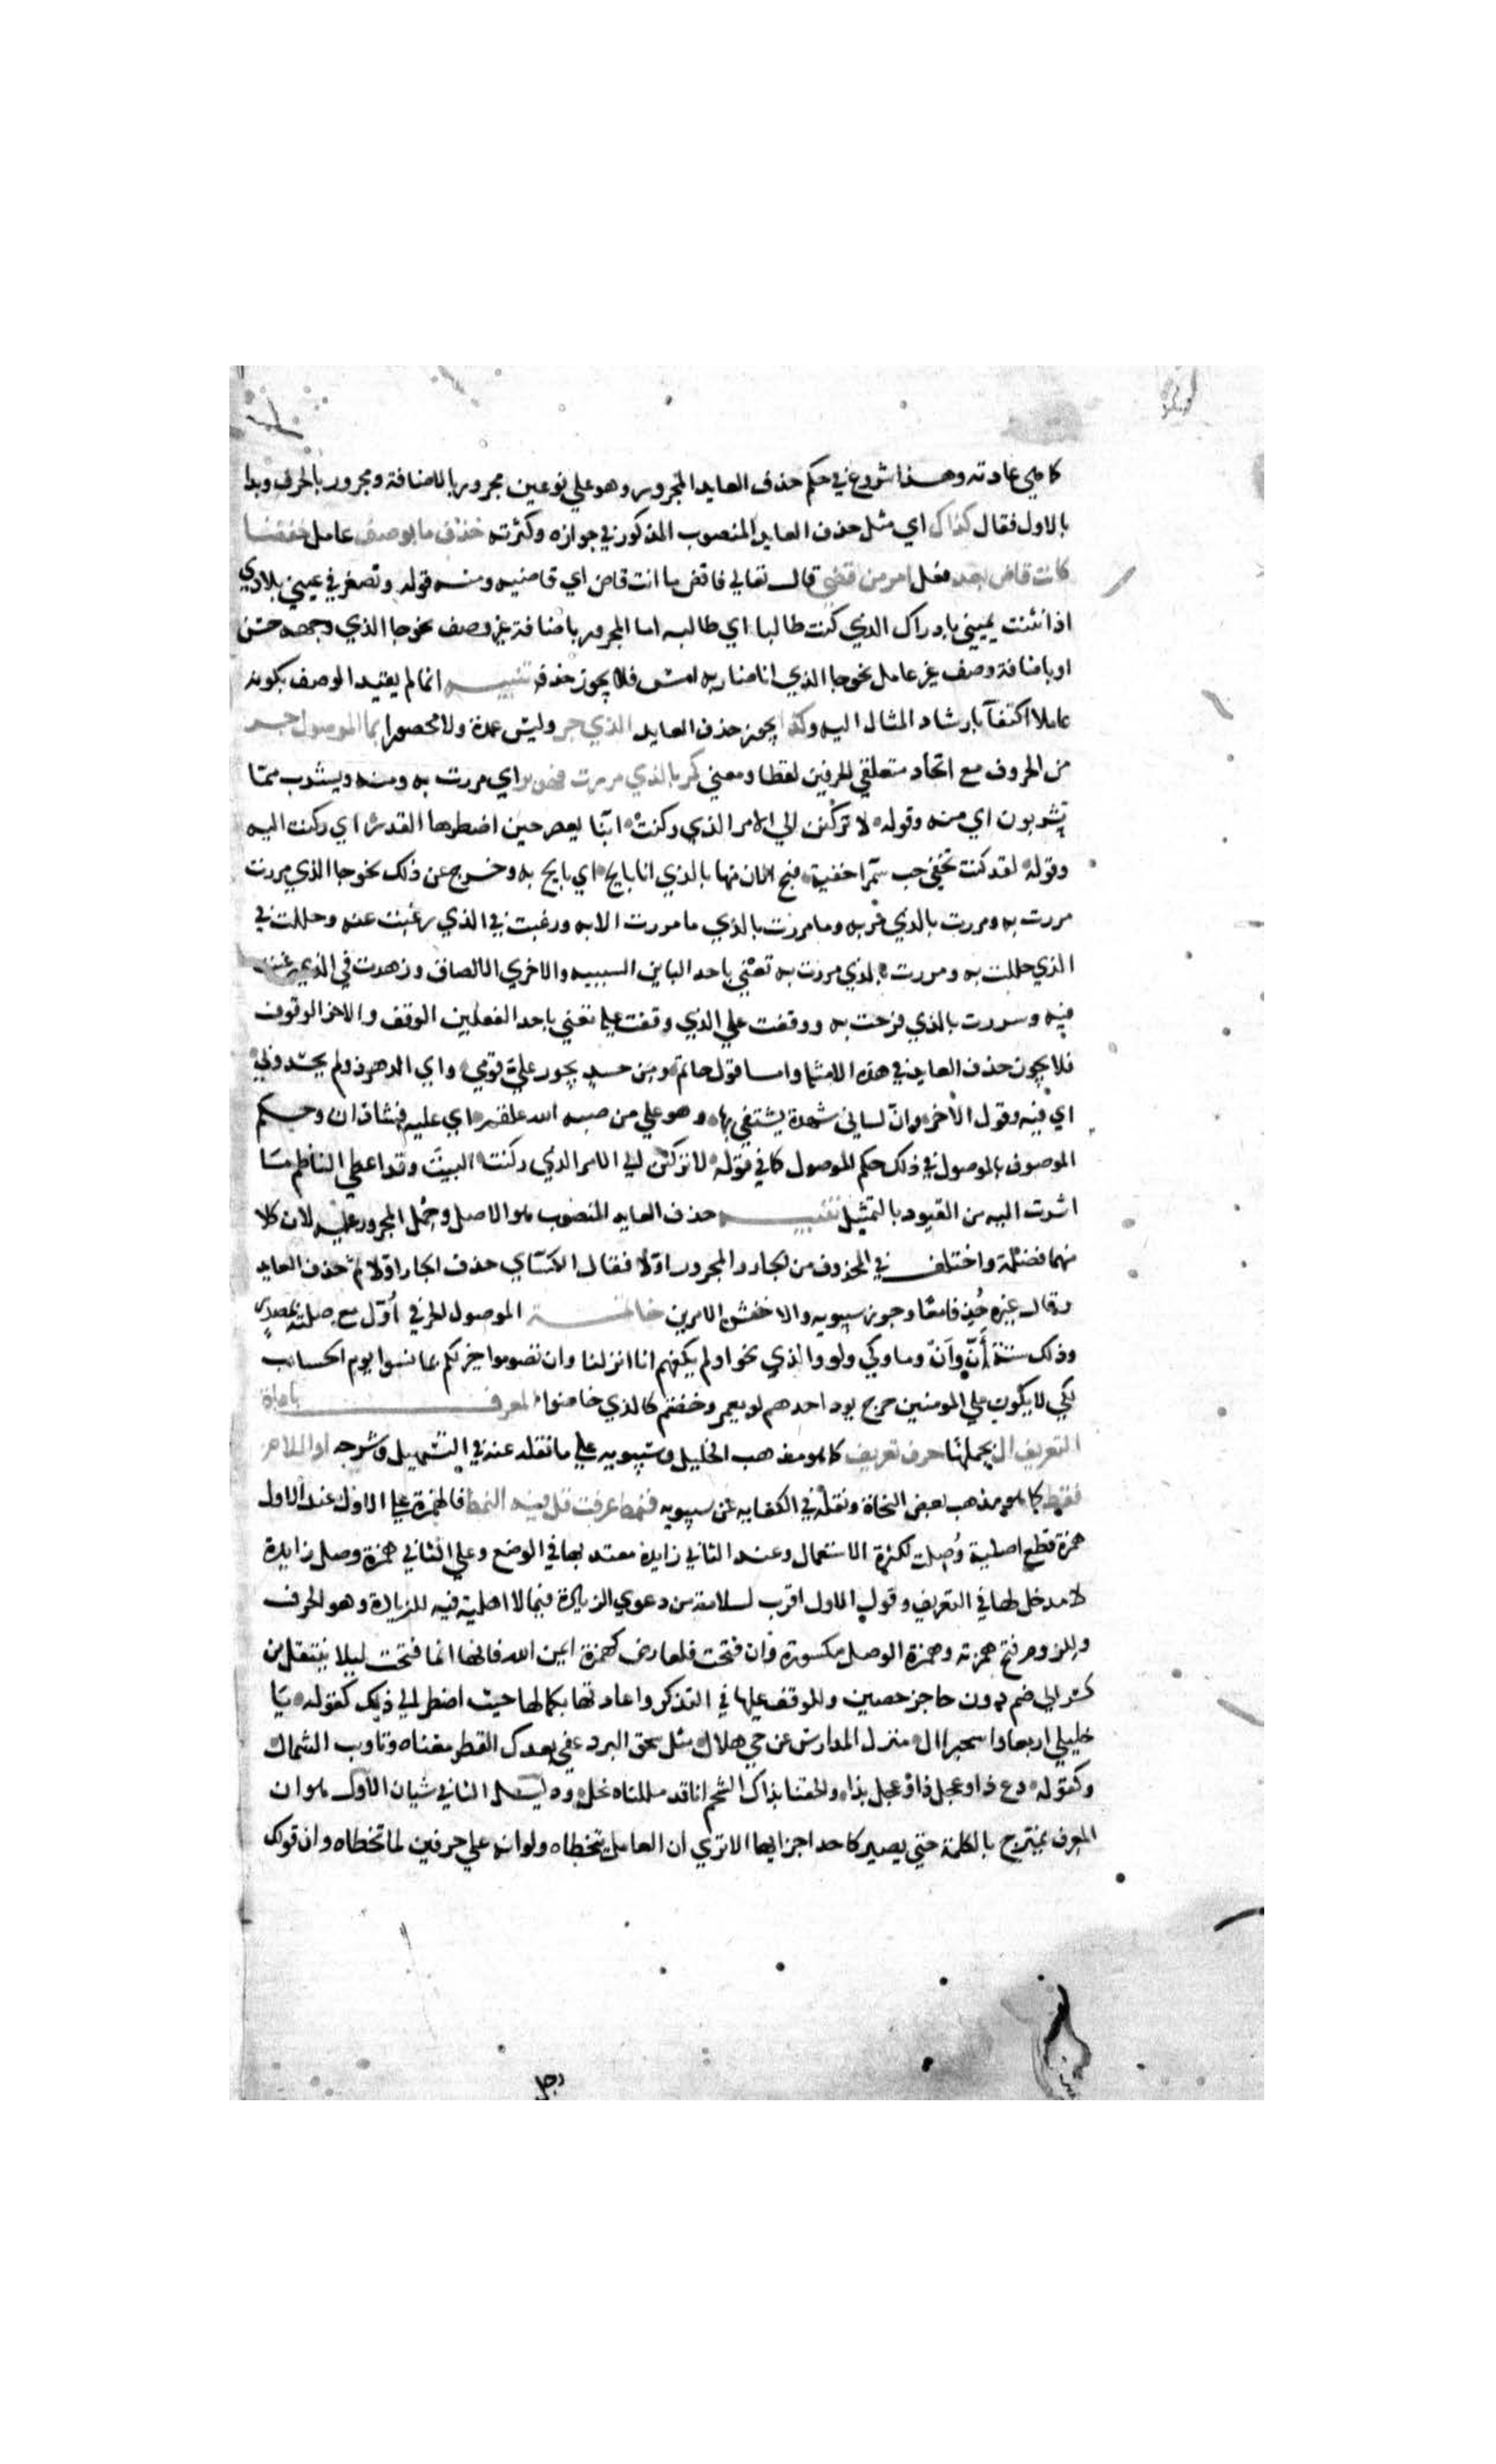 كما هي عادته وهذا شروع في حكم حذف العايد المجرور وهو علي نوعين مجرور بالاضافة ومجرور بالحرف وبدا
بالاول فقال كذاك اي مثل حذف العايد المنصوب المذكور في جوازه وكثرته حذف ما بوصف عامل خفضا
كانت قاض بعد فعل امر من قضي قال تعالي فاقض ما انت قاض اي قاضيه ومنه قوله وتصغر في عيني بلادي
اذا انثنت يميني بادراك الذي كنت طالبا اي طالبه اما المجرور باضافة غير وصف نحو جا الذي وجهه حسن
او باضافة وصف غير عامل نحو جا الذي انا ضاربه امس فلا يجوز حذفه تنبيه انما لم يقيد الوصف بكونه
عاملا اكتفآ بارشاد المثال اليه وكذا يجوز حذف العايد الذي جر وليس عمدة ولا محصورا بما الموصول جر
من الحروف مع اتحاد متعلقي الحرفين لفظا ومعني كمر بالذي مررت فهو بر اي مررت به ومنه ويشرب مما
تشربون اي منه وقوله لا تركنن الي الامر الذي ركنت ابنا يعصر حين اضطرها القدر اي ركنت اليه
وقوله لقد كنت تخفي حب سمرا حقبة فبح الان منها بالذي انا بايح اي بايح به وخرج عن ذلك نحو جا الذي مررت
مررت به ومررت بالذي مر به وما مررت بالذي ما مررت الا به ورغبت في الذي رغبت عنه وحللت في
الذي حللت به ومررت بالذي مررت به تعني باحد البايين السببيه والاخري الالصاق وزهدت في الذي رغبت
فيه وسررت بالذي فرحت به ووقفت علي الذي وقفت عليه تعني باحد الفعلين الوقف والاخر الوقوف
فلا يجوز حذف العايد في هذه الامثلة واما قول حاتم ومن حسد يجور علي قومي واي الدهر ذو لم يحسدوني
اي فيه وقول الاخر وان لساني شهدة يشتفي بها وهو علي من صبه الله علقم اي عليه فشاذان وحكم
الموصوف بالموصول في ذلك حكم الموصول كما في قوله لا تركنن الي الامر الذي ركنت البيت وقد اعطي الناظم ما
اشرت اليه من القيود بالتمثيل تنبيه حذف العايد المنصوب هو الاصل وحمل المجرور عليه لان كلا
منهما فضلة واختلف في المحذوف من الجار والمجرور اولا فقال الكسآي حذف الجار اولا ثم حذف العايد
وقال غيره حذفا معا وجوز سيبويه والاخفش الامرين خاتمة الموصول الحرفي اول مع صلته بمصدر
وذلك ستة أنّ وأنْ وما وكي ولو والذي نحو اولم يكفهم انا انزلنا وان تصوموا خير لكم بما نسوا يوم الحساب
لكي لا يكون علي المومنين حرج يود احدهم لو يعمر وخضتم كالذي خاضوا المعرف باداة
التعريف ال بجملتها حرف تعريف كما هو مذهب الخليل وسيبويه علي ما نقله عنه في التسهيل وشرحه او اللام
فقط كما هو مذهب بعض النحاة ونقله في الكفايه عن سيبويه فنمط عرفت قل فيه النمط فالهمزة علي الاول عند الاول
همزة قطع اصلية وصلت لكثرة الاستعمال وعند الثاني زايدة معتد بها في الوضع وعلي الثاني همزة وصل زايدة
لا مدخل لها في التعريف وقول الاول اقرب لسلامته من دعوي الزيادة فيما لا اهلية فيه للزيادة وهو الحرف
وللزوم فتح همزته وهمزة الوصل مكسورة وان فتحت فلعارض كهمزة ايمن الله فانها انما فتحت ليلا ينتقل من
كسر الي ضم دون حاجز حصين وللوقف عليها في التذكر واعادتها بكمالها حيث اضطر الي ذلك كقوله يا
خليلي اربعا واستخبرا ال منزل الدارس عن حي حلال مثل سحق البرد عفي بعدك القطر مغناه وتاويب الشمال
وكقوله دع ذا وعجل ذا وعجل بذا والحقنا بذا ال الشحم انا قد مللناه بخل ودليل الثاني شيان الاول هو ان
المعرف يمتزج بالكلمة حتي يصير كاحد اجزايها الا تري ان العامل يتخطاه ولو انه علي حرفين لما تخطاه وان قولك
رجل